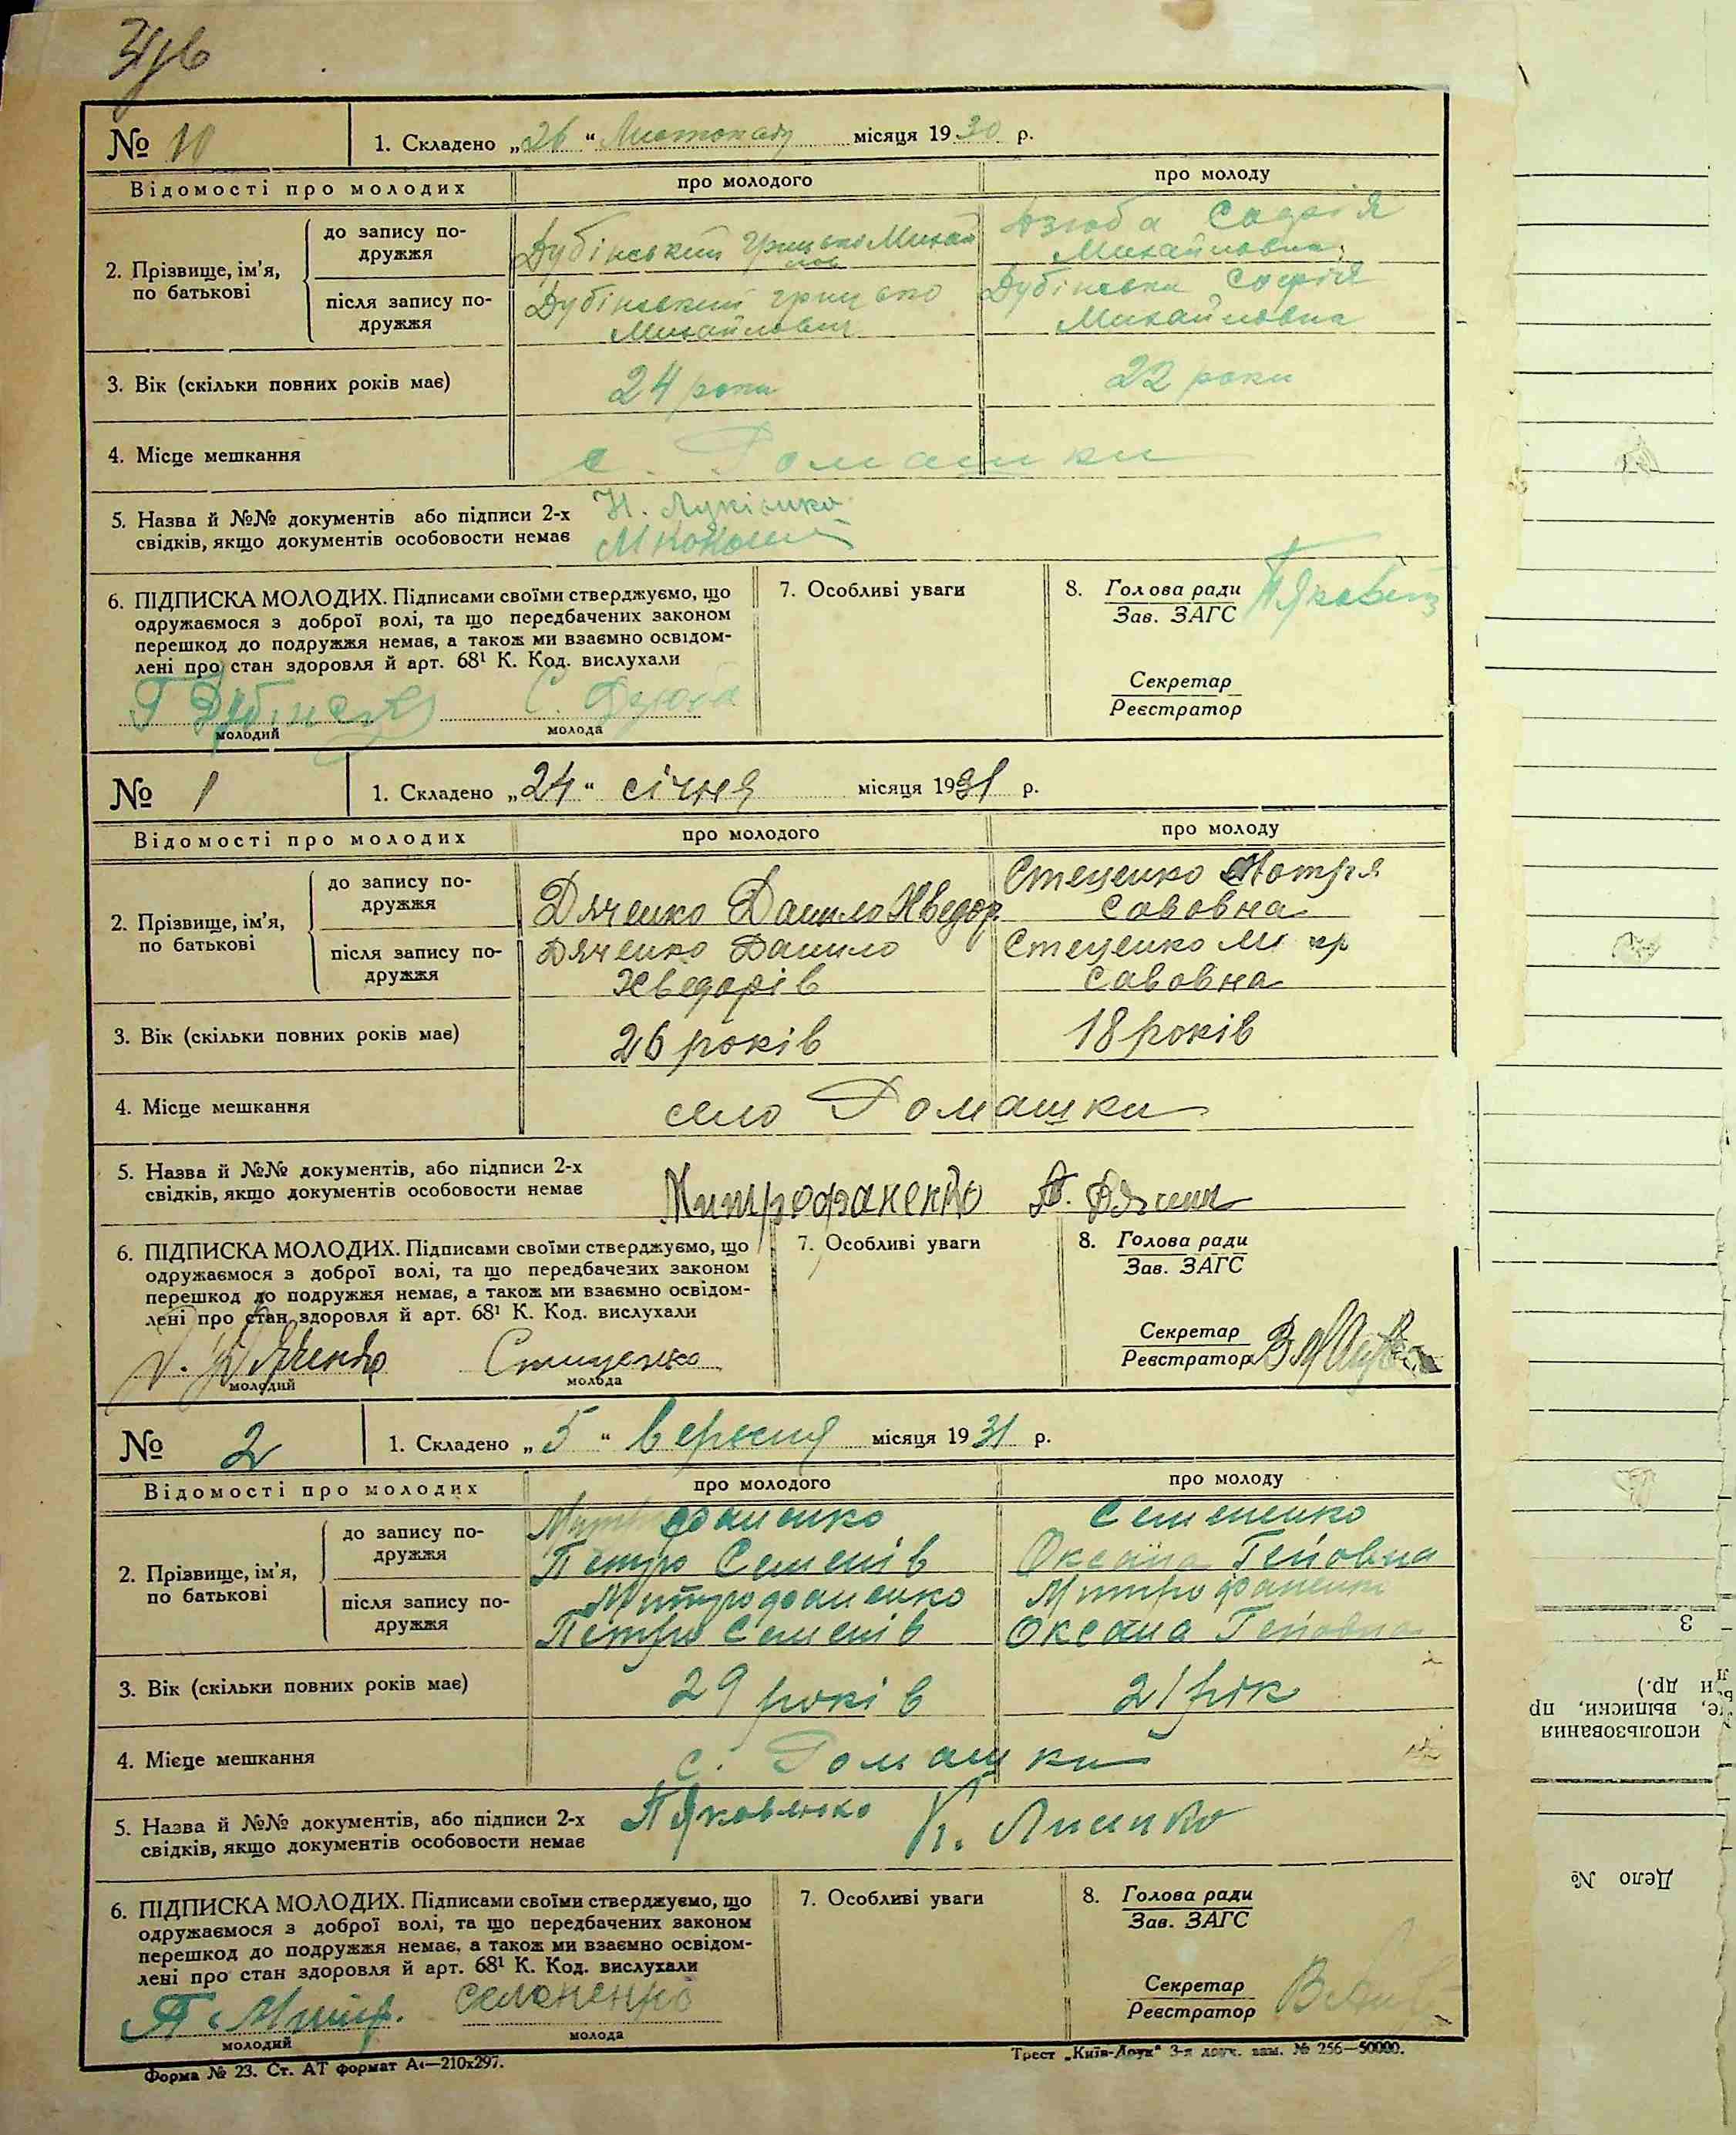 № 10
1. Складено „26“ Листопаду місяця 1930 р.
Відомості про молодих
про молодого
про молоду
2. Прізвище, ім’я, по батькові
до запису по-
дружжя
Дубінський Грицько Михай
лов
Дзюба Софія
Михайловна
після запису по-
дружжя
Дубінський Грицько
Михайлович
Дубінська Софія
Михайловна
3. Вік (скільки повних років має)
24 роки
22 роки
4. Місце мешкання
с. Ромашки
5. Назва й №№ документів або підписи 2-х
свідків, якщо документів особовости немає
Н. Лукієнко
6. ПІДПИСКА МОЛОДИХ. Підписами своїми стверджуємо, що
одружаємося з доброї волі, та що передбачених законом
перешкод до подружжя немає, а також ми взаємно освідом-
лені про стан здоровля й арт. 68¹ К. Код. вислухали
Г Дубінский
С. Дзюба
молодий
молода
7. Особливі уваги
8. Голова ради
Зав. ЗАГС
Секретар
Реєстратор
№ 1
1. Складено „24“ січня місяця 1931 р.
Відомості про молодих
про молодого
про молоду
2. Прізвище, ім’я,
по батькові
до запису по-
дружжя
Дяченко Данило Хведор
Стеценко Мотря
Савовна
після запису по-
дружжя
Дяченко Данило
Хведорів
Стеценко М тр
Савовна
3. Вік (скільки повних років має)
26 років
18 років
4. Місце мешкання
село Ромашки
5. Назва й №№ документів, або підписи 2-х
свідків, якщо документів особовости немає
Митрофаненко
6. ПІДПИСКА МОЛОДИХ. Підписами своїми стверджуємо, що
одружаємося з доброї волі, та що передбачених законом
перешкод до подружжя немає, а також ми взаємно освідом-
лені про стан здоровля й арт. 68¹ К. Код. вислухали
Д. Дяченко
Стиценко
молодий
молода
7. Особливі уваги
8. Голова ради
Зав. ЗАГС
Секретар
Реєстратор
№ 2
1. Складено „5“ вересня місяця 1931 р.
Відомості про молодих
про молодого
про молоду
2. Прізвище, ім’я,
по батькові
до запису по-
дружжя
Митрофаненко
Петро Семенів
Семененко
Оксана
після запису по-
дружжя
Митрофаненко
Петро Семенів
Митрофаненко
Оксана
3. Вік (скільки повних років має)
29 років
21 рік
4. Місце мешкання
с. Ромашки
5. Назва й №№ документів, або підписи 2-х
свідків, якщо документів особовости немає
П Яковенко
К. Лисенко
6. ПІДПИСКА МОЛОДИХ. Підписами своїми стверджуємо, що
одружаємося з доброї волі, та що передбачених законом
перешкод до подружжя немає, а також ми взаємно освідом-
лені про стан здоровля й арт. 68¹ К. Код. вислухали
П Митр.
Семененко
молодий
молода
7. Особливі уваги
8. Голова ради
Зав. ЗАГС
Секретар
Реєстратор
Форма № 23. Ст. АТ формат А4—210х297.
Трест „Київ-Друк“ 3-я друк. зам. № 256—50000.
Дело №
использования
выписки, пр
и др.)
3